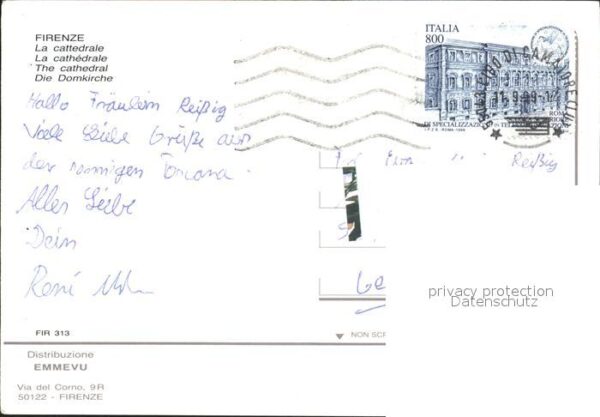 FIRENZE
La cattedrale
La cathédrale
The cathedral
Die Domkirche
Hallo Fräulein Reißig
Viele Liebe Grüße aus
der sonnigen Toscana.
Alles Liebe
Dein
René
ITALIA
800
ROMA
DI SPECIALIZZAZIONE IN TELE
I.P.Z.S. ROMA
Reißig
privacy protection
Datenschutz
FIR 313
NON SCR
Distribuzione
EMMEVU
Via del Corno, 9R
50122 - FIRENZE